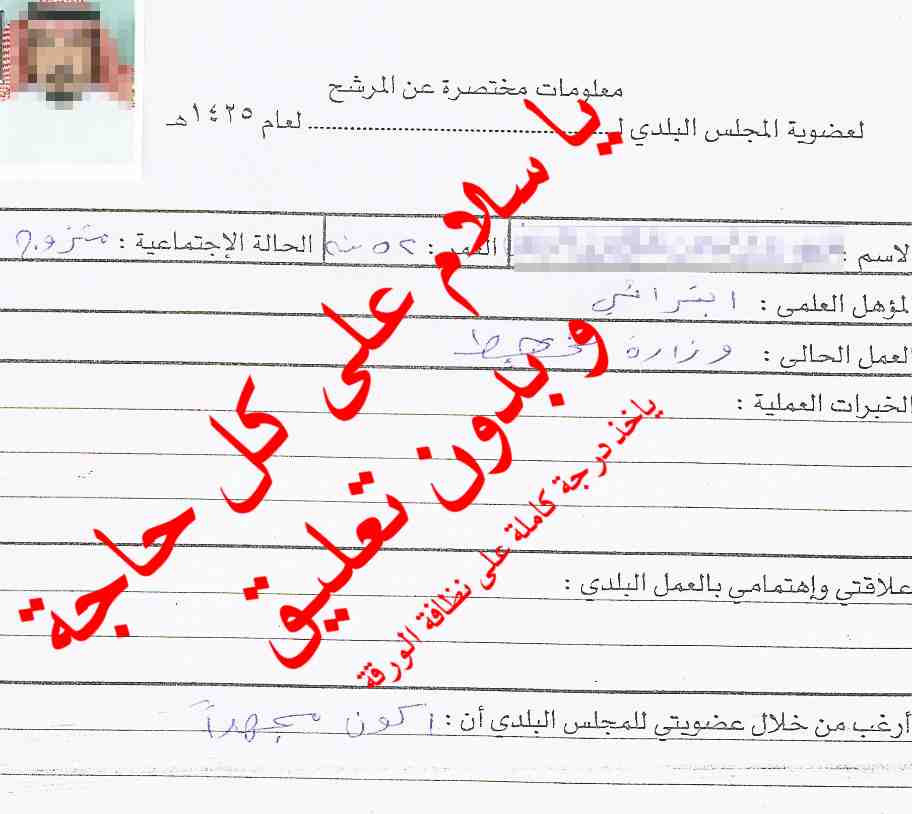 معلومات مختصرة عن المرشح
لعضوية المجلس البلدي لـ ........................ لعام ١٤٢٥هـ
لاسم :
العمر : ٥٢ سنه
الحالة الإجتماعية : متزوج
لمؤهل العلمى : ابتدائي
العمل الحالى : وزارة تخطيط
الخبرات العملية :
علاقتي وإهتمامي بالعمل البلدي :
أرغب من خلال عضويتي للمجلس البلدي أن : أكون مجهداً
يا سلام على كل حاجة
و بدون تعليق
ياخذ درجة كاملة على نظافة الورقة